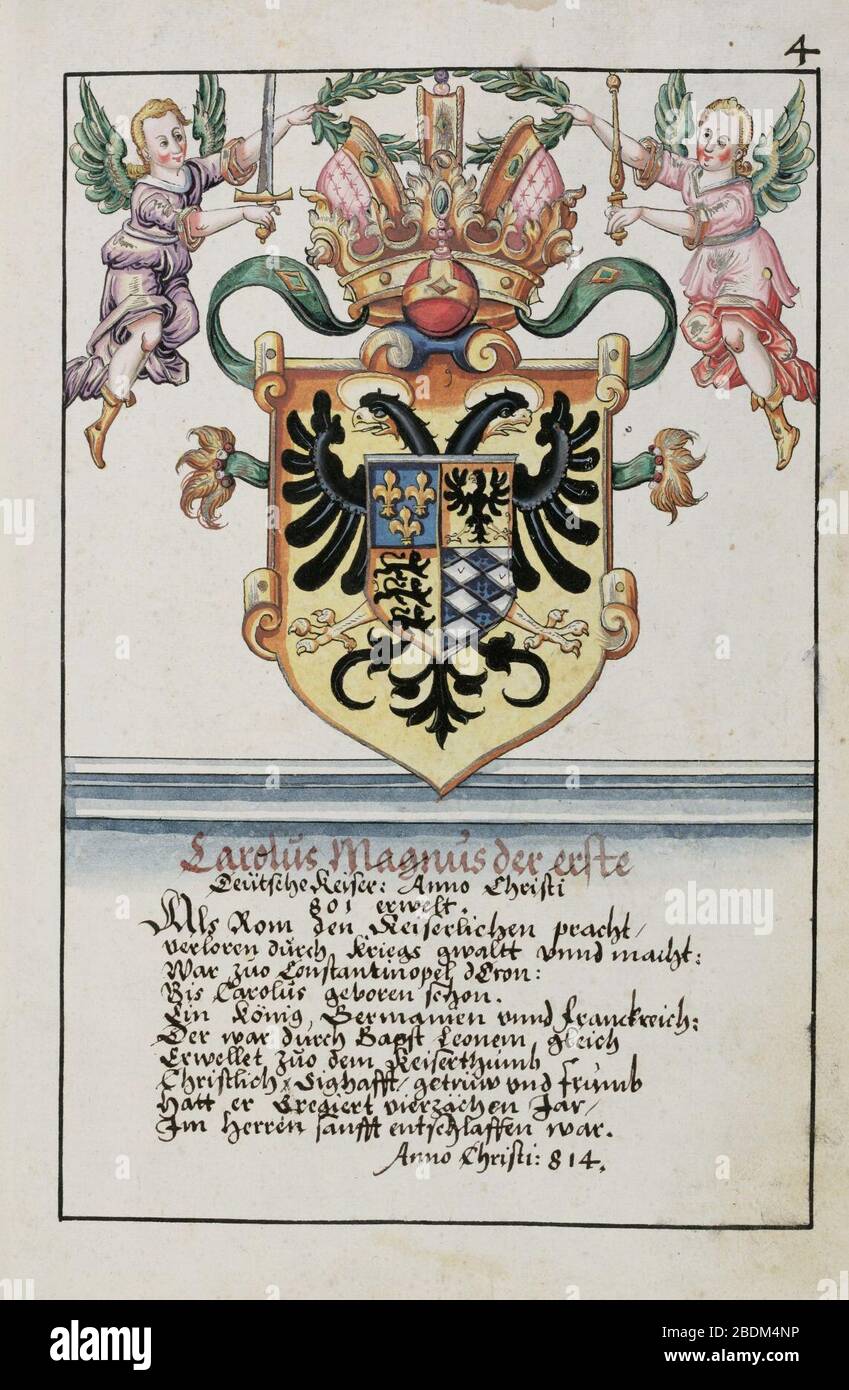 4
Carolus Magnus der erste
Deutsche Keiser: Anno Christi
801 erwelt.
Als Rom den Keiserlichen pracht/
verloren durch Kriegs gwaltt vnnd macht:
War zuo Constantinopel dCron:
Bis Carolus geboren schon.
Ein König, Germanien vnnd Franckreich:
Der war durch Bapst Leonem gleich
Erwellet zuo dem Keiserthumb
Christlich Sighafft/ getruw vnd frumb
Hatt er Gregiert vierzächen Jar/
Im Herren sanfft entschlaffen war.
Anno Christi: 814.
alamy
Image ID: 2BDM4NP
www.alamy.com